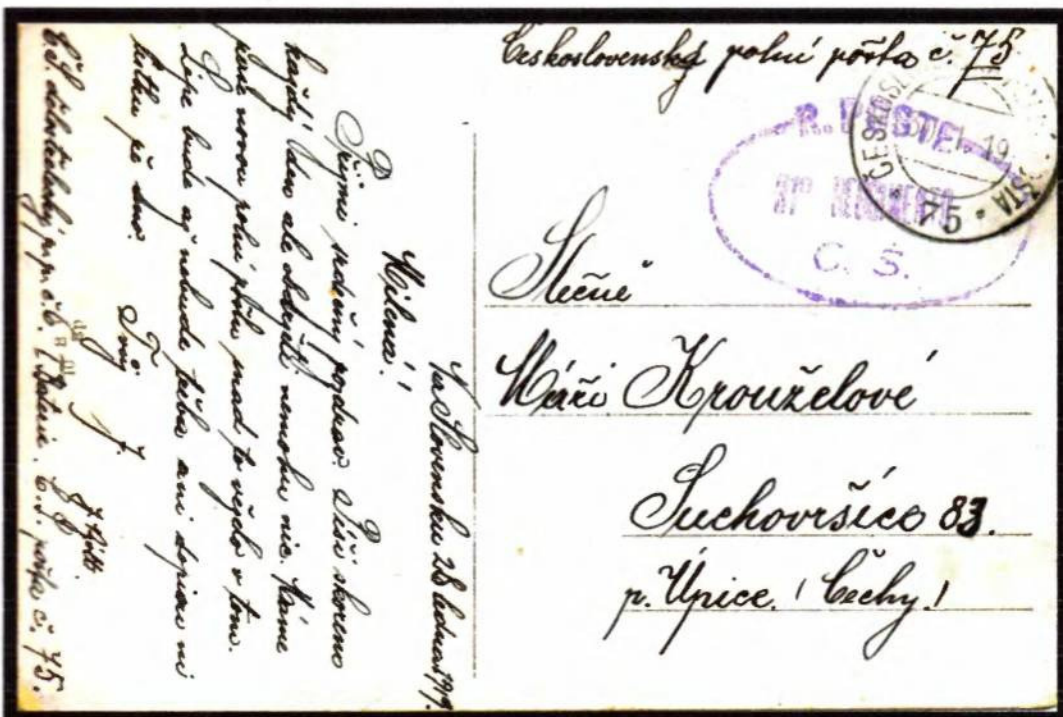 Československá polní pošta č. 75
R. POSTE
31º REGIMENTO
Č. S.
75
Slečně
Máři Krouželové
Suchovršice 83.
p. Úpice. (Čechy.)
Na Slovensku 28 ledna 1919.
Milená!
Přijmi srdečný pozdrav. Píši skoro
každý den ale obdržeti nemohu nic. Máme
novou polní poštu snad to vězelo v tom.
Lépe bude až nebude třeba ani dopisu ni
lístku že ano.
Tvůj J.
Č.S. dělostřelecký Baterie, č.S. pošta č. 75.